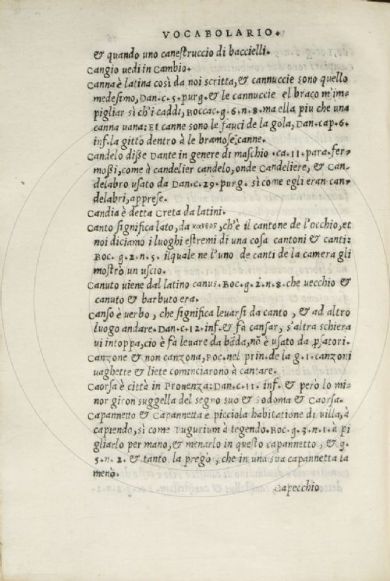 VOCABOLARIO.
& quando uno canestruccio di baccielli.
Cangio uedi in Cambio.
Canna è latina così da noi scritta, & cannuccie sono quello
medesimo, Dan.c.5.purg. & le cannuccie el braco m'im-
pigliar sì ch'i caddi, Boccac.g.6.n.8. ma ella piu che una
canna uana; Et canne sono le fauci de la gola, Dan.cap.6.
inf. la gittò dentro à le bramose canne.
Candelo disse Dante in genere di maschio .ca.11.para.fer-
mossi, come à candelier candelo, onde Candeliere, & Can-
delabro usato da Dan.c.29.purg. sì come egli eran can-
delabri, apprese.
Candia è detta Creta da latini.
Canto significa lato, da κανθος, ch'è il cantone de l'occhio, et
noi diciamo i luoghi estremi di una cosa cantoni & canti:
Boc. g.2.n.5. ilquale ne l'uno de canti de la camera gli
mostrò un uscio.
Canuto uiene dal latino canus. Boc.g.2.n.8. che uecchio &
canuto & barbuto era.
Canso è uerbo, che significa leuarsi da canto, & ad altro
luogo andare. Dan.c.12.inf. & fa cansar, s'altra schiera
ui intoppa, cio è fa leuare da bāda, nō è usato da p̱satori.
Canzone & non canzona, Boc.nel prin.de la g.1. canzoni
uaghette & liete cominciarono à cantare.
Caorsa è città in Prouenza: Dan.c.11. inf. & però lo mi-
nor giron suggella del segno suo & Sodoma & Caorsa.
Capannetto & Capannetta e picciola habitatione di uilla, à
capiendo, sì come Tugurium à tegendo. Boc.g.3.n.1. à pi
gliarlo per mano, & menarlo in questo capannetto, & g.
5.n.2. & tanto la pregò, che in una sua capannetta la
menò.
Capecchio